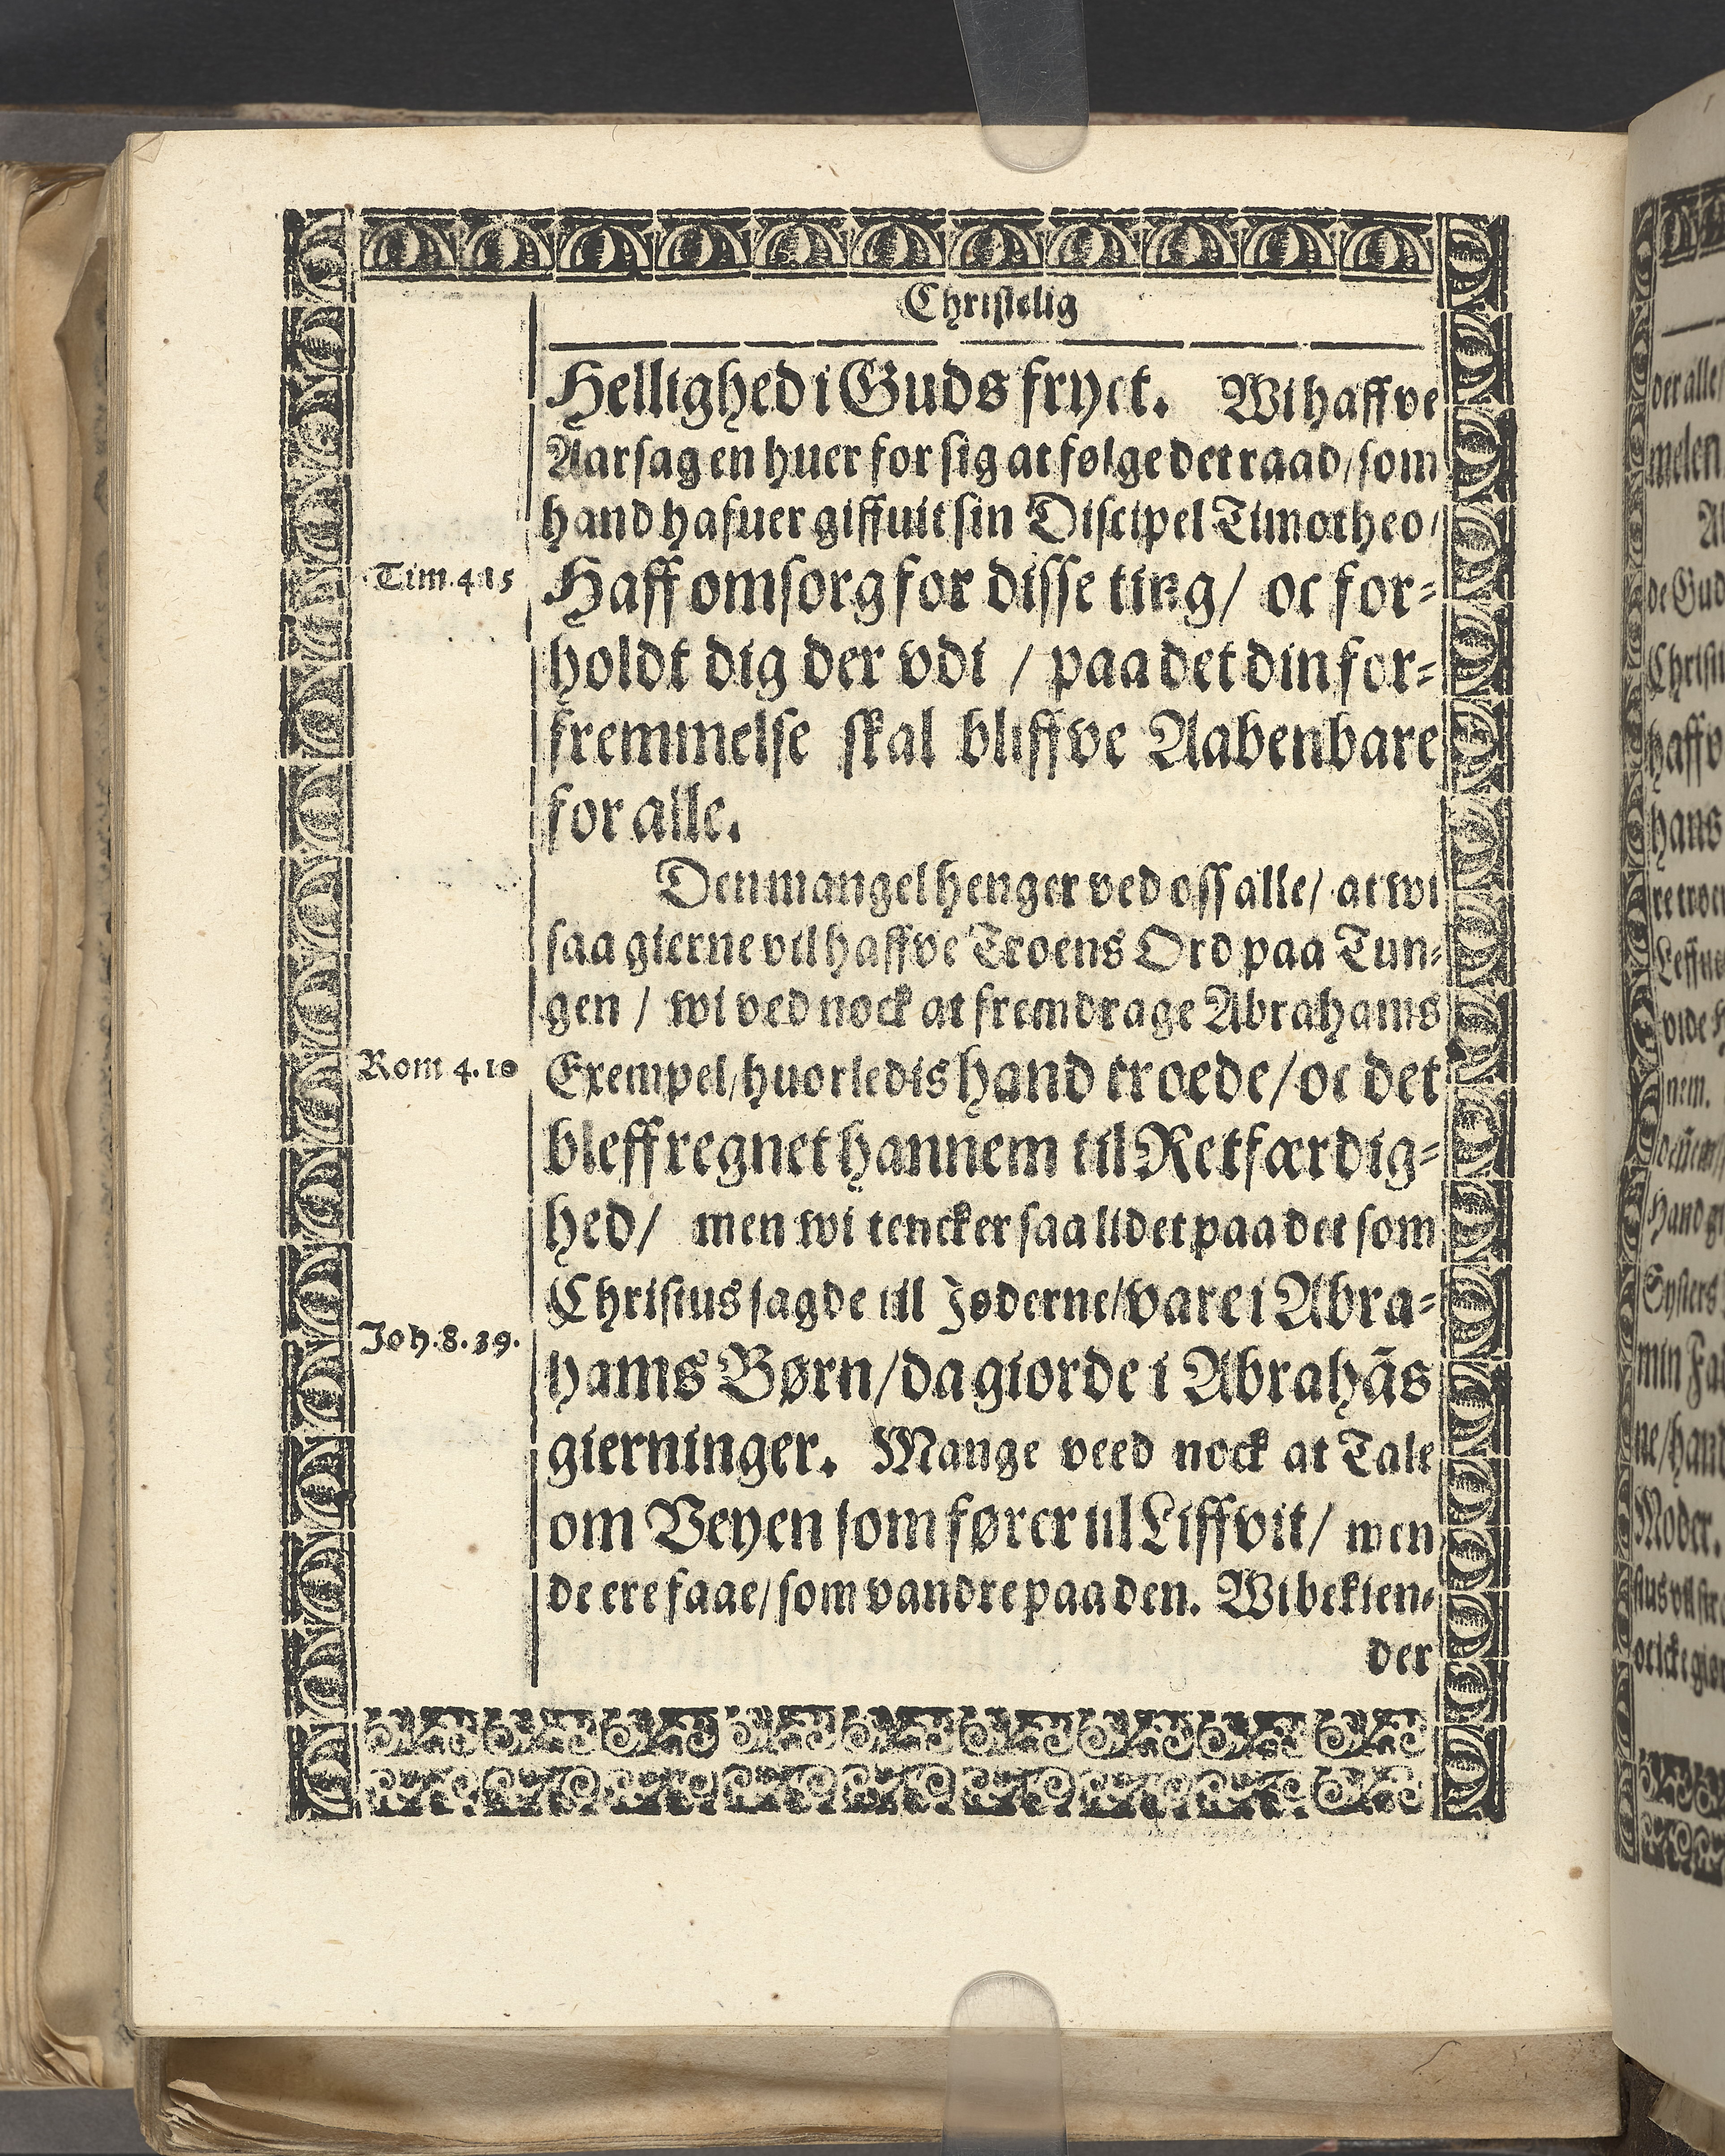 Christelig
Hellighed i Guds fryct. Wi haffve
Aarsagen huer for sig at følge det raad/ som
hand hafuer giffuit sin Discipel Timotheo/
Tim. 4.15
Haff omsorg for disse ting/ oc for-
holdt dig der vdi / paa det din for-
fremmelse skal bliffve Aabenbare
for alle.
Den mangel henger ved oss alle/ at wi
saa gierne vil haffve Troens Ord paa Tun-
gen / wi ved nock at fremdrage Abrahams
Rom 4.10
Exempel/ huorledis hand troede/ oc det
bleff regnet hannem til Retfærdig-
hed/ men wi tencker saa lidet paa det som
Christus sagde til Jøderne/ vare i Abra-
Joh. 8. 39.
hams Børn/ da giorde i Abrahãs
gierninger. Mange veed nock at Tale
om Veyen som fører til Liffvit/ men
de ere faae/ som vandre paa den. Wi bekien-
der